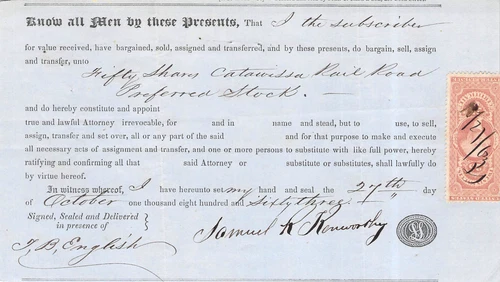 Know all Men by these Presents, That I the subscriber
for value received, have bargained, sold, assigned and transferred, and by these presents, do bargain, sell, assign
and transfer, unto
Fifty Shares Catawissa Rail Road
Preferred Stock. —
and do hereby constitute and appoint
true and lawful Attorney irrevocable, for and in name and stead, but to use, to sell,
assign, transfer and set over, all or any part of the said and for that purpose to make and execute
all necessary acts of assignment and transfer, and one or more persons to substitute with like full power, hereby
ratifying and confirming all that said Attorney or substitute or substitutes, shall lawfully do
by virtue hereof.
In witness whereof, I have hereunto set my hand and seal the 27th day
of October one thousand eight hundred and Sixty three
Signed, Sealed and Delivered
in presence of
T. B. English
Samuel K Kenworthy